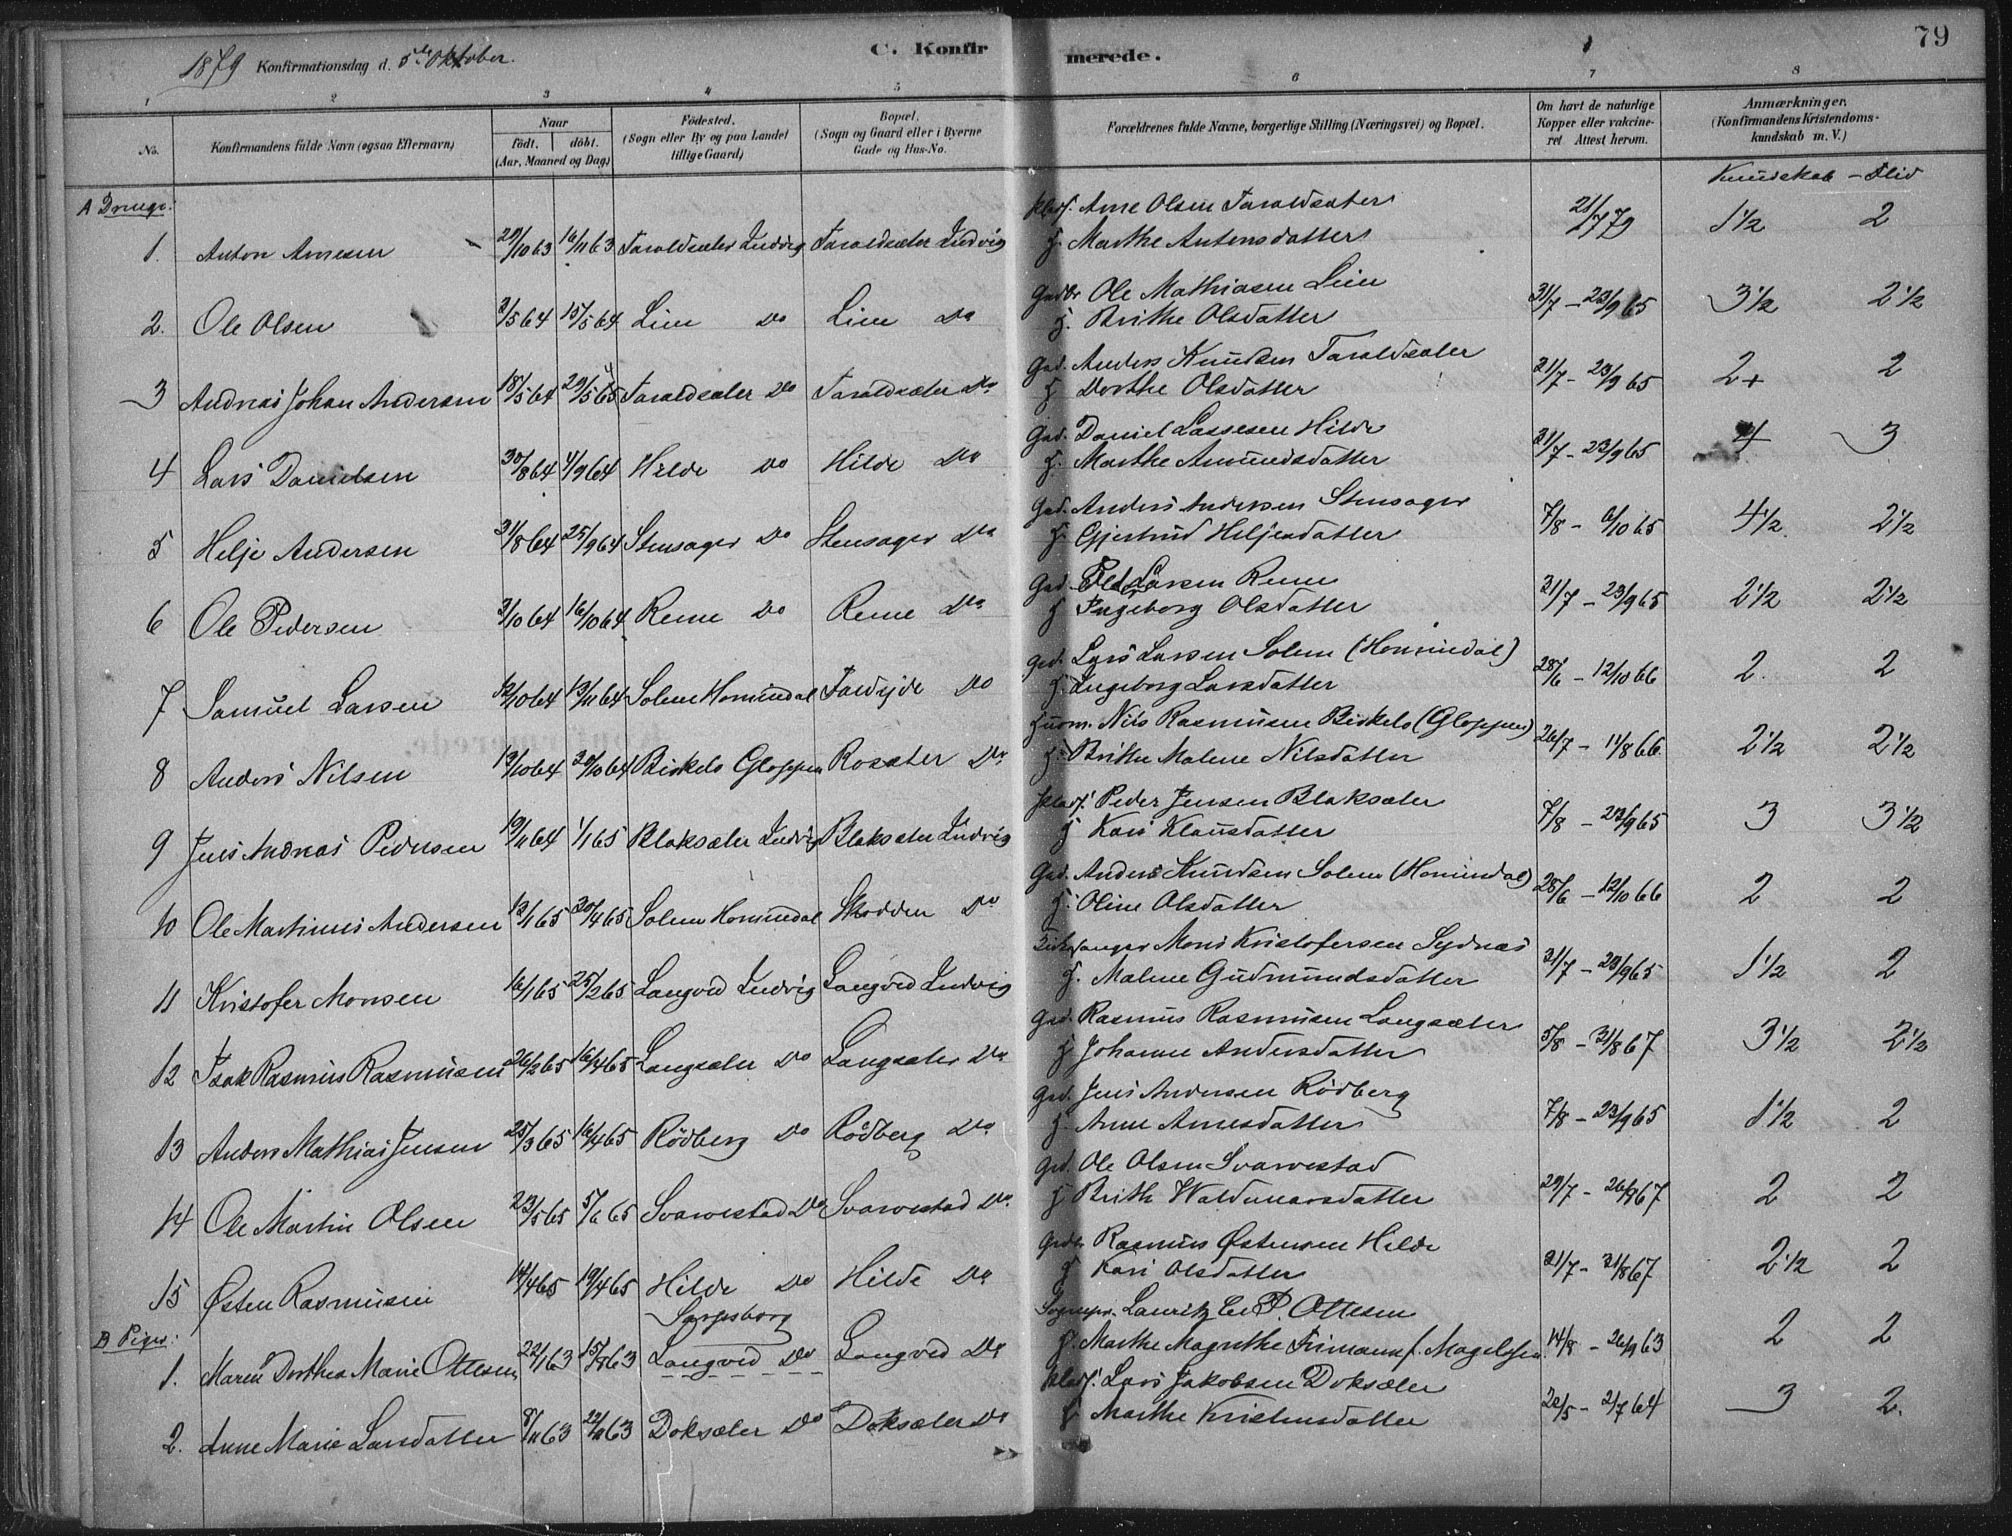 79
1879 Konfirmationsdag d. 5te Oktober.
C. Konfir
merede.
1 2 3 4 5 6 7 8
No.
Konfirmandens fulde Navn (ogsaa Efternavn)
Naar
født. døbt.
(Aar, Maaned og Dag)
Fødested.
(Sogn eller By og paa Landet
tillige Gaard)
Bopæl.
(Sogn og Gaard eller i Byerne
Gade og Hus-No.
Forældrenes fulde Navne, borgerlige Stilling (Næringsvei) og Bopæl.
Om havt de naturlige
Kopper eller vaccine-
ret Attest herom.
Anmærkninger.
(Konfirmandens Kristendoms-
kundskab m. V.)
Kundskab - Flid
A Drenge:
Arne Olsen Taraldsæter
1. Anton Arnesen 29/10 63 16/11 63 Taraldsæter Indvig Taraldsæter Indvig Marthe Antonsdatter 21/7 79 1½ 2
Gadbr Ole Mathiasen Lien
2. Ole Olsen 3/5 64 15/5 64 Lien Do Lien Do H. Brithe Olsdatter 31/7 - 23/9 65 3½ 2½
Gad. Anders Knudsen Taraldsæter
3 Andreas Johan Andersen 18/5 64 29/5 65 Taraldsæter Do Taraldsæter Do H Dorthe Olsdatter 31/7 - 23/9 65 2+ 2
Gad. Daniel Lassesen Hilde
4 Lars Danielsen 30/8 64 4/9 64 Hilde Do Hilde Do H. Marthe Amundsdatter 31/7 - 23/9 65 4 3
Gad. Anders Andersen Stensager
5 Helje Andersen 31/8 64 25/9 64 Stensager Do Stensager Do H. Gjertrud Heljesdatter 7/8 - 6/10 65 4½ 2½
Gad. Larsen Reme
6 Ole Pedersen 3/10 64 16/10 64 Reme Do Reme Do H Ingeborg Olsdatter 31/7 - 23/9 65 2½ 2½
Gad. Lars Larsen Solem (Hornindal)
7 Samuel Larsen 12/10 64 13/11 64 Solem Hornindal Do H. Ingeborg Larsdatter 28/6 - 12/10 66 2 2
Husm. Nils Rasmusen Birkelo (Gloppen)
8 Anders Nilsen 19/10 64 30/10 64 Birkelo Gloppen Rosæter Do H. Brithe Malene Nilsdatter 26/7 - 11/8 66 2½ 2½
Peder Jensen Blaksæter
9 Jens Andreas Pedersen 19/11 64 1/1 65 Blaksæter Indvig Blaksæter Indvig H Kari Klausdatter 7/8 - 23/9 65 3 3½
Gad. Anders Knudsen Solem (Hornindal)
10 Ole Martinus Andersen 13/1 65 30/4 65 Solem Hornindal Skodden Do H. Oline Olsdatter 28/6 - 12/10 66 2 2
Kirkesanger Mons Kristofersen Sydnæs
11 Kristofer Monsen 16/1 65 25/2 65 Langvid Indvig Langvid Indvig H. Malene Gudmundsdatter 31/7 - 23/9 65 1½ 2
Gad. Rasmus Rasmusen Langsæter
12 Isak Rasmus Rasmusen 26/2 65 16/4 65 Langsæter Do Langsæter Do H Johanne Andersdatter 5/8 - 31/8 67 3½ 2½
Gad. Jens Andersen Rödberg
13 Anders Mathias Jensen 25/3 65 16/4 65 Rödberg Do Rödberg Do H. Anne Arnesdatter 7/8 - 23/9 65 1½ 2
Gad. Ole Olsen Svarvestad
14 Ole Martin Olsen 23/5 65 5/6 65 Svarvestad Do Svarvestad Do H Brith Waldemarsdatter 29/7 - 26/9 67 2 2
Rasmus Østensen Hilde
15 Østen Rasmusen 14/4 65 19/4 65 Hilde Do Hilde Do H Kari Olsdatter 31/7 - 31/8 67 2½ 2
B Piger: Sarpsborg
Sognepr. Lauritz C. P. Ottesen
1. Maren Dorthea Marie Ottesen 22/1 63 63 Langvid Do Langvid Do H. Marthe Magrethe Frimann f. Magelssen 14/8 - 26/9 63 2 2
Lars Jakobsen Doksæter
2. Anne Marie Larsdatter 8/11 63 22/11 63 Doksæter Do Doksæter Do H Marthe Kristensdatter 20/5 - 2/7 64 3 2.